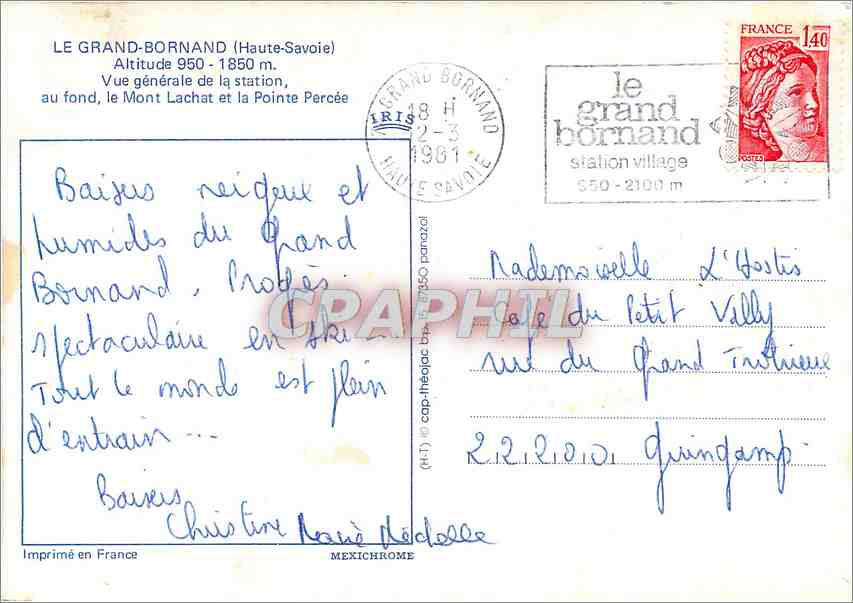 LE GRAND-BORNAND (Haute-Savoie)
Altitude 950 - 1850 m.
Vue générale de la station,
au fond, le Mont Lachat et la Pointe Percée
IRIS
GRAND BORNAND
18 H
2-3
1981
HAUTE SAVOIE
le
grand
bornand
station village
950-2100 m
FRANCE
1,40
POSTES
Baisers neigeux et
humides du Grand
Bornand. Progrès
spectaculaire en ski -
Tout le monde est plein
d'entrain ...
Baisers
Christine Marie
CRAPHIL
(H-T) © cap-théojac b.p. 15 87350 panazol
Mademoiselle L'Hostis
Café du Petit Vally
rue du Grand
22200 Guingamp
Imprimé en France
MEXICHROME